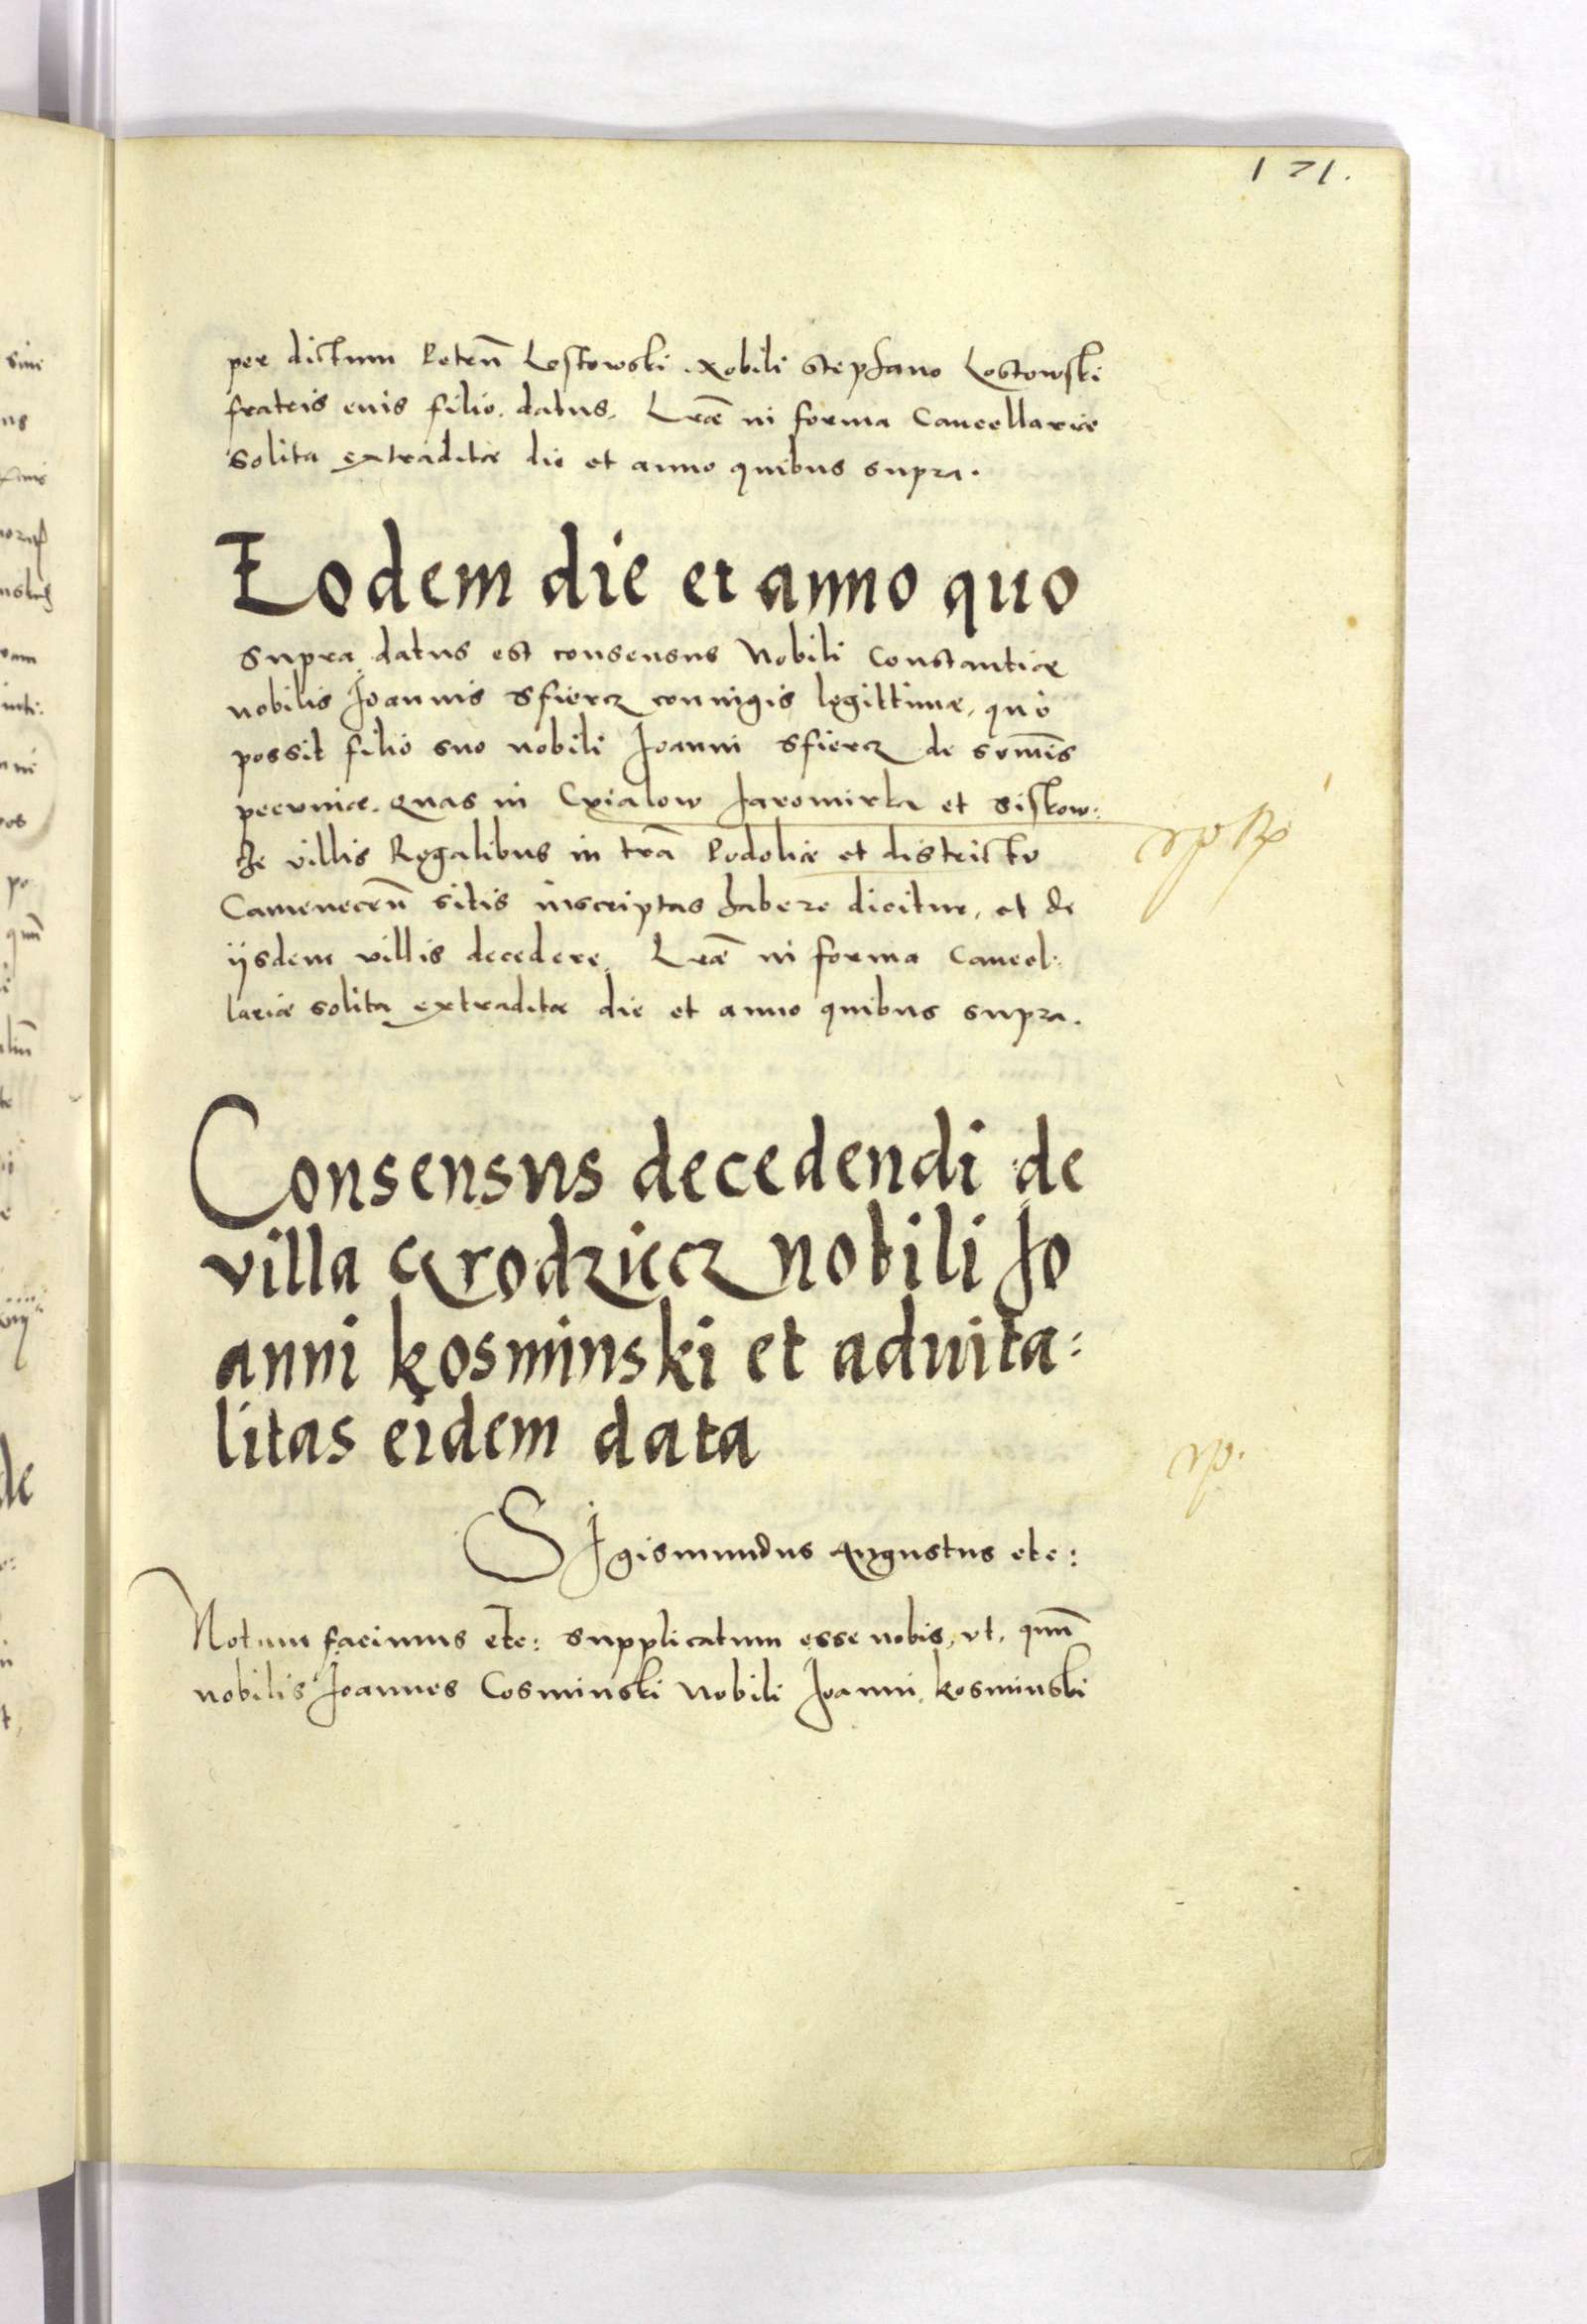 121.
per dictum Petrū Lostowski. Nobili Stephano Lostowski
fratris euis filio. datus. Lrae in forma Cancellariae
solita extraditae die et anno quibus supra.
Eodem die et anno quo
supra datus est consensus Nobili Constantiae
nobilis Joannis Sfiercz coniugis legittimae, quo
possit filio suo nobili Joanni Sfiercz de summis
pecuniae. quas in Jaromirka et Siskow:
ze villis Regalibus in tra Podoliae et districtu
Camenecen̄ sitis inscriptas habere dicitur, et de
ijsdem villis decedere. Lrae in forma Cancel:
lariae solita extraditae die et anno quibus supra.
Consensus decedendi de
villa Grodzicz nobili Jo
anni Kosminski et aduita:
litas eidem data
Sigismundus Augustus etc:
Notum facimus etc: supplicatum esse nobis, vt. quū
nobilis Joannes Cosminski Nobili Joanni. Kosminski